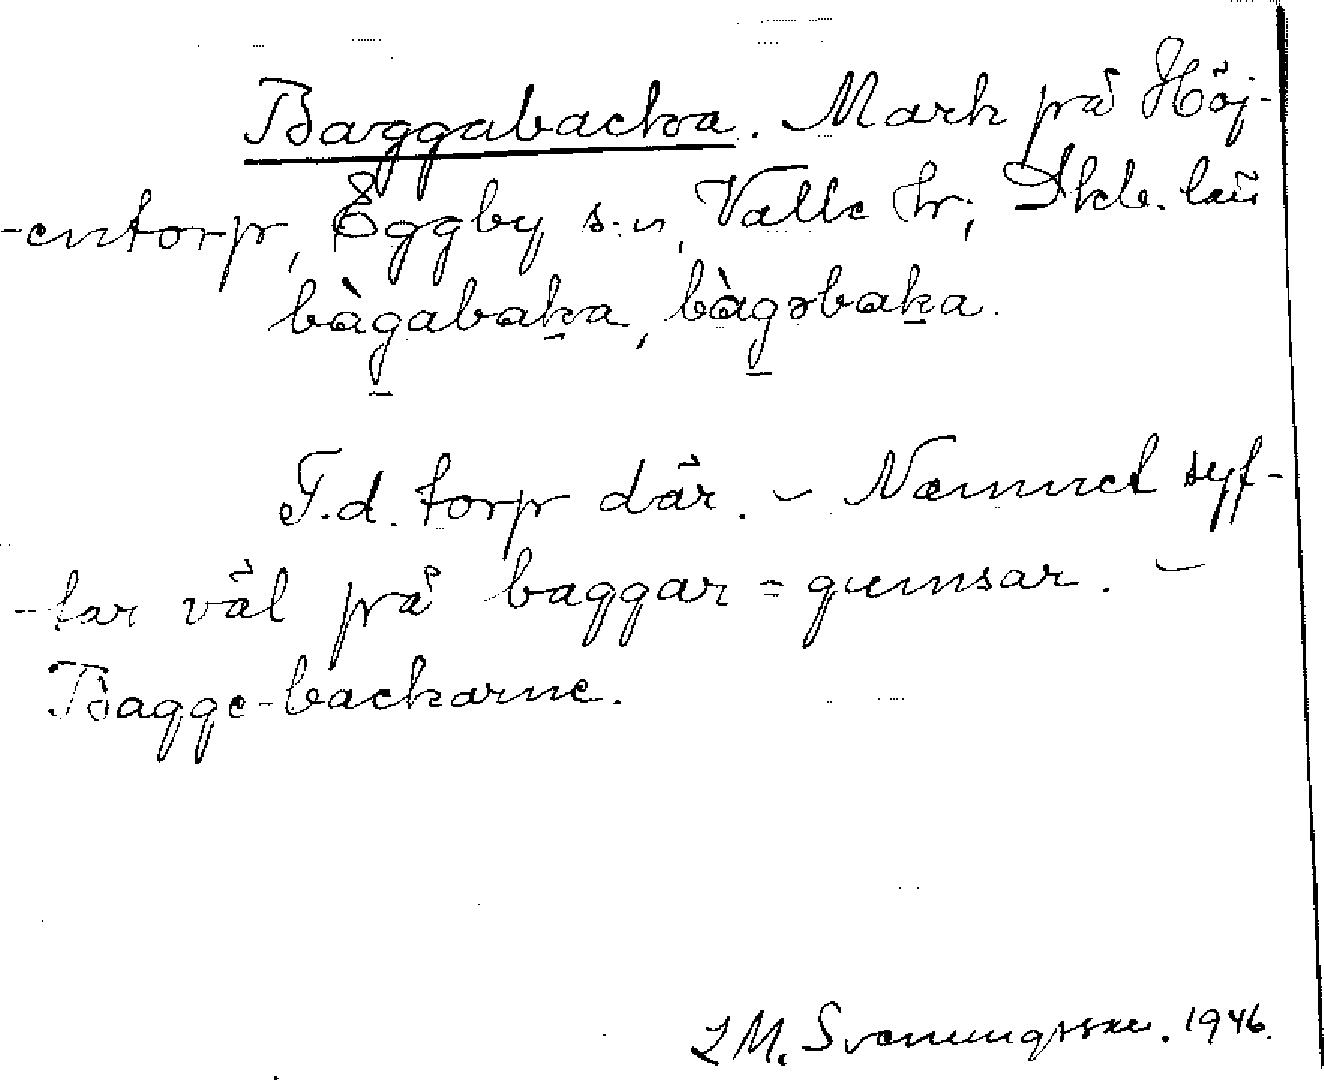 Baggabacka. Mark på Höj-
-entorp, Eggby s:n, Valle hr, Skb. län
bàgabaka, bàgəbaka.
F.d. torp där. – Namnet syf-
-tar väl på baggar = gumsar. –
Bagge-backarne.
L M. Svenungsson. 1946.